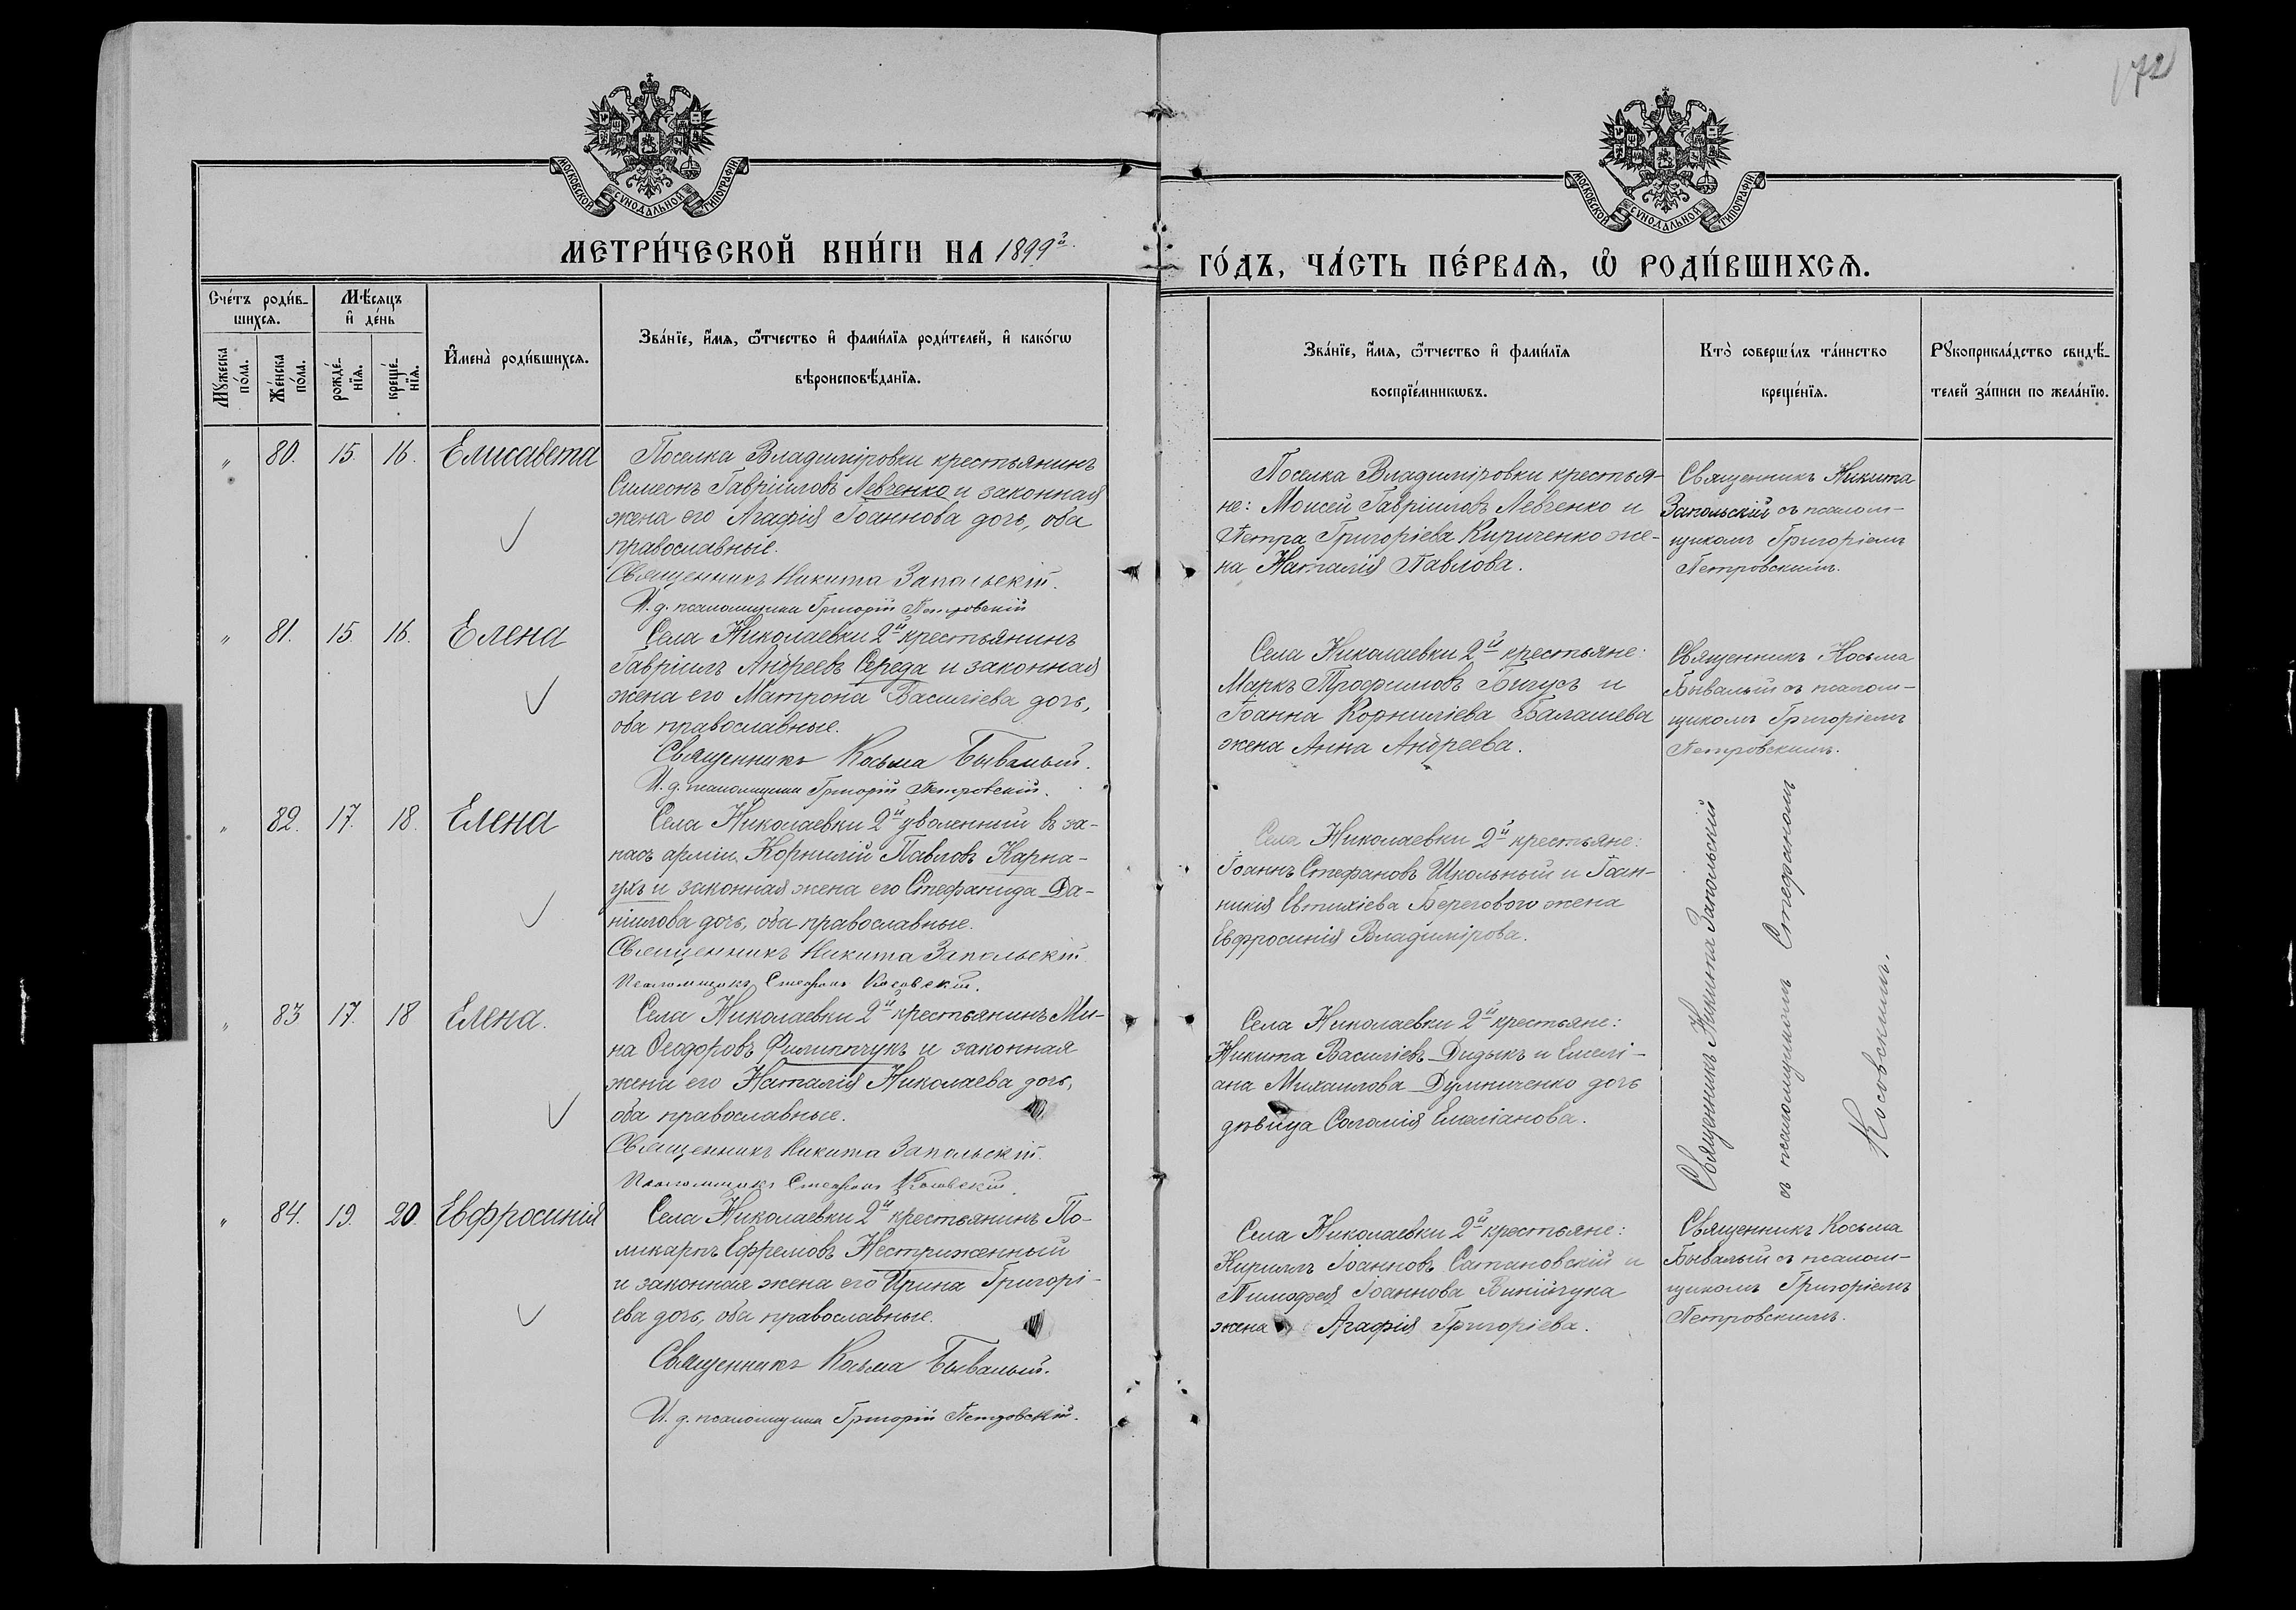 172
МОСКОВСКОЙ СѴНОДАЛЬНОЙ ТИПОГРАФІИ
МОСКОВСКОЙ СѴНОДАЛЬНОЙ ТИПОГРАФІИ
МЕТРИ́ЧЕСКОЙ КНИ́ГИ НА 1899й
ГО́ДЪ, ЧА́СТЬ ПЕ́РВАѦ, Ѡ РОДИ́ВШИХСѦ.
Сче́тъ роди́в-
шихсѧ.
Мѣ́сѧцъ
и҆ де́нь
Мꙋ́жеска
по́ла.
Же́нска
по́ла.
рожде́-
нїѧ.
креще́-
нїѧ.
И҆мена̀ роди́вшихсѧ.
Зва́нїе, и҆́мѧ, ѻ҆́тчество и҆ фами́лїѧ роди́телей, и҆ како́гѡ
вѣроисповѣ́данїѧ.
Зва́нїе, и҆́мѧ, ѻ҆́тчество и҆ фами́лїѧ
воспрїе́мникѡвъ.
Кто̀ соверши́лъ та́инство
креще́нїѧ.
Рꙋкоприкла́дство свидѣ́-
телей за́писи по жела́нїю.
" 80. 15. 16. Елисавета
Поселка Владиміровки крестьянинъ
Симеонъ Гавріиловъ Левченко и законная
жена его Агафія Іоаннова дочь, оба
православные.
Священникъ Никита Запольскій.
И. д. псаломщика Григорій Петровскій
Поселка Владиміровки крестья-
не: Моисей Гавріиловъ Левченко и
Петра Григоріева Кириченко же-
на Наталія Павлова.
Священникъ Никита
Запольскій съ псалом-
щикомъ Григоріемъ
Петровскимъ.
" 81. 15 16. Елена
Села Николаевки 2й крестьянинъ
Гавріилъ Андреевъ Середа и законная
жена его Матрона Василіева дочь,
оба православные.
Священникъ Косьма Бывалый.
И. д. псаломщика Григорій Петровскій.
Села Николаевки 2й крестьяне:
Маркъ Трофимовъ Бигусъ и
Іоанна Корниліева Балашева
жена Анна Андреева.
Священникъ Косьма
Бывалый съ псалом-
щикомъ Григоріемъ
Петровскимъ.
" 82. 17. 18. Елена
Села Николаевки 2й уволенный въ за-
пасъ арміи Корнилій Павловъ Карна-
ухъ и законная жена его Стефанида Да-
ніилова дочь, оба православные.
Священникъ Никита Запольскій.
Псаломщикъ Стефанъ Косовскій.
Села Николаевки 2й крестьяне:
Іоаннъ Стефановъ Школьный и Іоан-
никія Евтихіева Берегового жена
Евфросинія Владимірова.
Священникъ Никита Запольскій
съ псаломщикомъ Стефаномъ
Косовскимъ.
" 83 17. 18 Елена.
Села Николаевки 2й крестьянинъ Ми-
на Ѳеодоровъ Филиппчукъ и законная
жена его Наталія Николаева дочь,
оба православные.
Священникъ Никита Запольскій.
Псаломщикъ Стефанъ Косовскій.
Села Николаевки 2й крестьяне:
Никита Василіевъ Дидыкъ и Емелі-
ана Михаилова Думниченко дочь
дѣвица Соломія Емеліанова.
" 84. 19. 20. Евфросинія
Села Николаевки 2й крестьянинъ По-
ликарпъ Ефремовъ Нестриженный
и законная жена его Ирина Григорі-
ева дочь, оба православные.
Священникъ Косьма Бывалый.
И. д. псаломщика Григорій Петровскій.
Села Николаевки 2й крестьяне:
Кириллъ Іоанновъ Сатановскій и
Тимофея Іоаннова Винійчука
жена Агафія Григоріева.
Священникъ Косьма
Бывалый съ псалом-
щикомъ Григоріемъ
Петровскимъ.